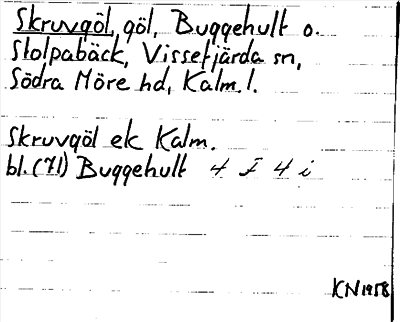 Skruvgöl, göl, Buggehult o.
Stolpabäck, Vissefjärda sn,
Södra Möre hd, Kalm. l.
Skruvgöl ek Kalm.
bl. (71) Buggehult 4 F 4 i
KN 1958